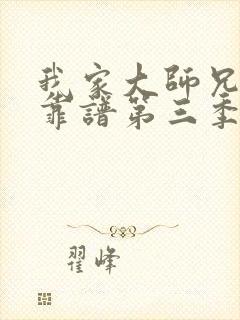 我家大師兄
靠譜第三季
翟峰